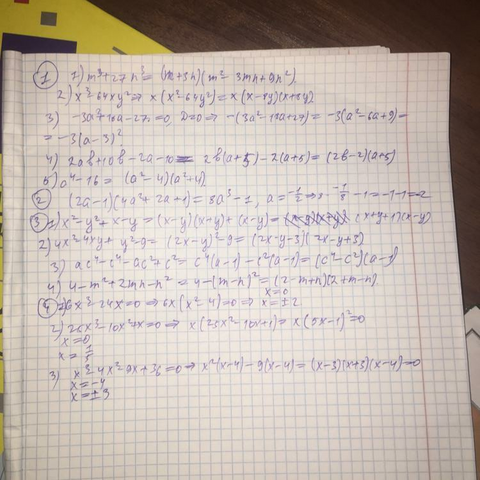 ① 1) m³+27n³ = (m+3n)(m²-3mn+9n²)
2) x³-64xy² ⇒ x(x²-64y²) = x(x-8y)(x+8y)
3) -3a²+18a-27=0, D=0 ⇒ -(3a²-18a+27) = -3(a²-6a+9) =
= -3(a-3)²
4) 2ab+10b-2a-10 = 2b(a+5)-2(a+5) = (2b-2)(a+5)
5) a⁴-16 = (a²-4)(a²+4)
② (2a-1)(4a²+2a+1) = 8a³-1, a=-1/2 ⇒ 8·-1/8-1=-1-1=-2
③ 1) x²-y²+x-y = (x-y)(x+y)+(x-y) = (x+y+1)(x-y)
2) 4x²-4xy+y²-9 = (2x-y)²-9 = (2x-y-3)(2x-y+3)
3) ac⁴-c⁴-ac²+c² = c⁴(a-1)-c²(a-1) = (c⁴-c²)(a-1)
4) 4-m²+2mn-n² = 4-(m-n)² = (2-m+n)(2+m-n)
④ 1) 6x³-24x=0 ⇒ 6x(x²-4)=0 ⇒ x=0
x=±2
2) 25x³-10x²+x=0 ⇒ x(25x²-10x+1) = x(5x-1)²=0
x=0
x=1/5
3) x³-4x²-9x+36=0 ⇒ x²(x-4)-9(x-4) = (x-3)(x+3)(x-4)=0
x=-4
x=±3